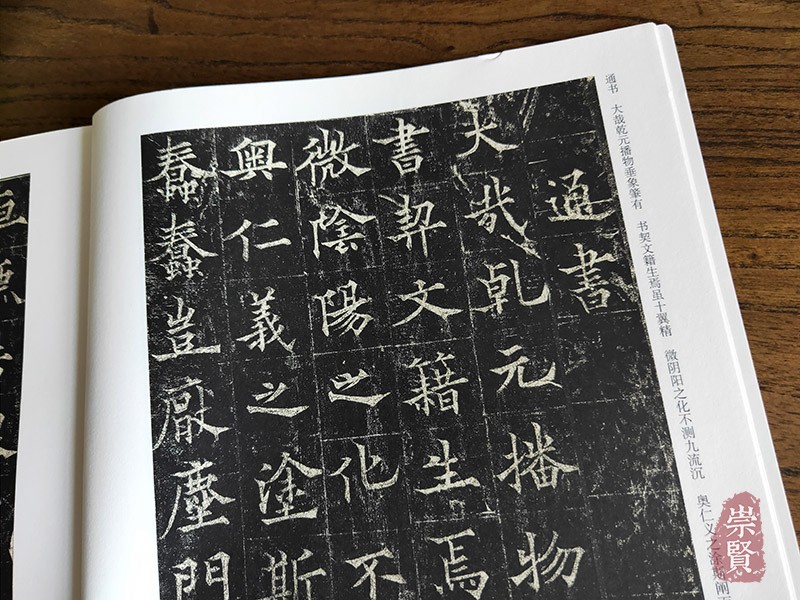 通书 大哉乾元播物垂象肇有 书契文籍生焉虽十翼精 微阴阳之化不测九流沉 奥仁义之涂斯阐
通書
大哉乾元播物
書契文籍生焉
微陰陽之化不
奥仁義之塗斯
蠢蠢豈厭塵門
崇賢